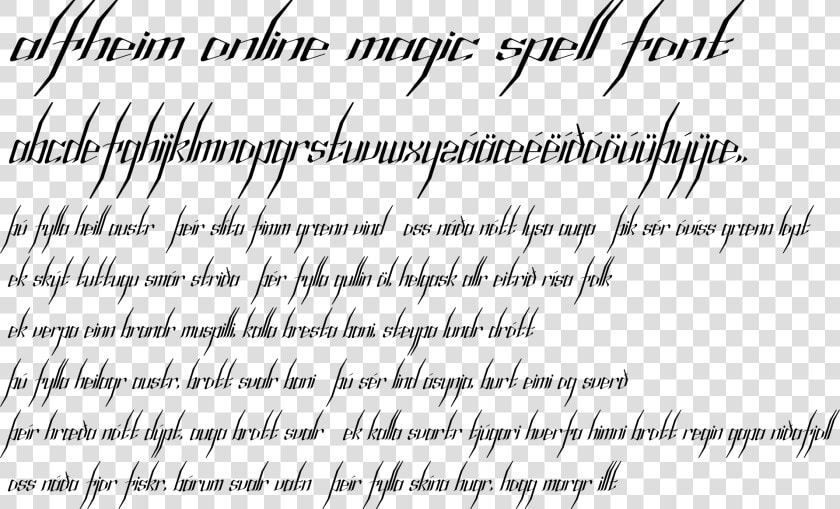 alfheim online magic spell font
abcdefghijklmnopqrstuvwxyzáäæéëíðóöúüþýÿœ,.
þú fylla heill austr þeír slíta fimm grœnn vind oss náða nótt lysa auga þik sér óvíss grœnn lopt
ek skýt tuttugu smár stríða þér fylla gullin öl, helgask allr eitrið rísa folk
ek verpa einn brandr muspilli, kalla bresta bani, steypa lundr drótt
þú fylla heilagr austr, brott svalr bani þú sér lind ásynja, burt eimi og sverð
þeír hræða nótt dýpt, auga brott svalr ek kalla svartr tjúgari hverfa himni brott regin gapa niðafjoll
oss náða fjor fiskr, bárum svalr vatn þeír fylla skína hugr, hogg margr illt